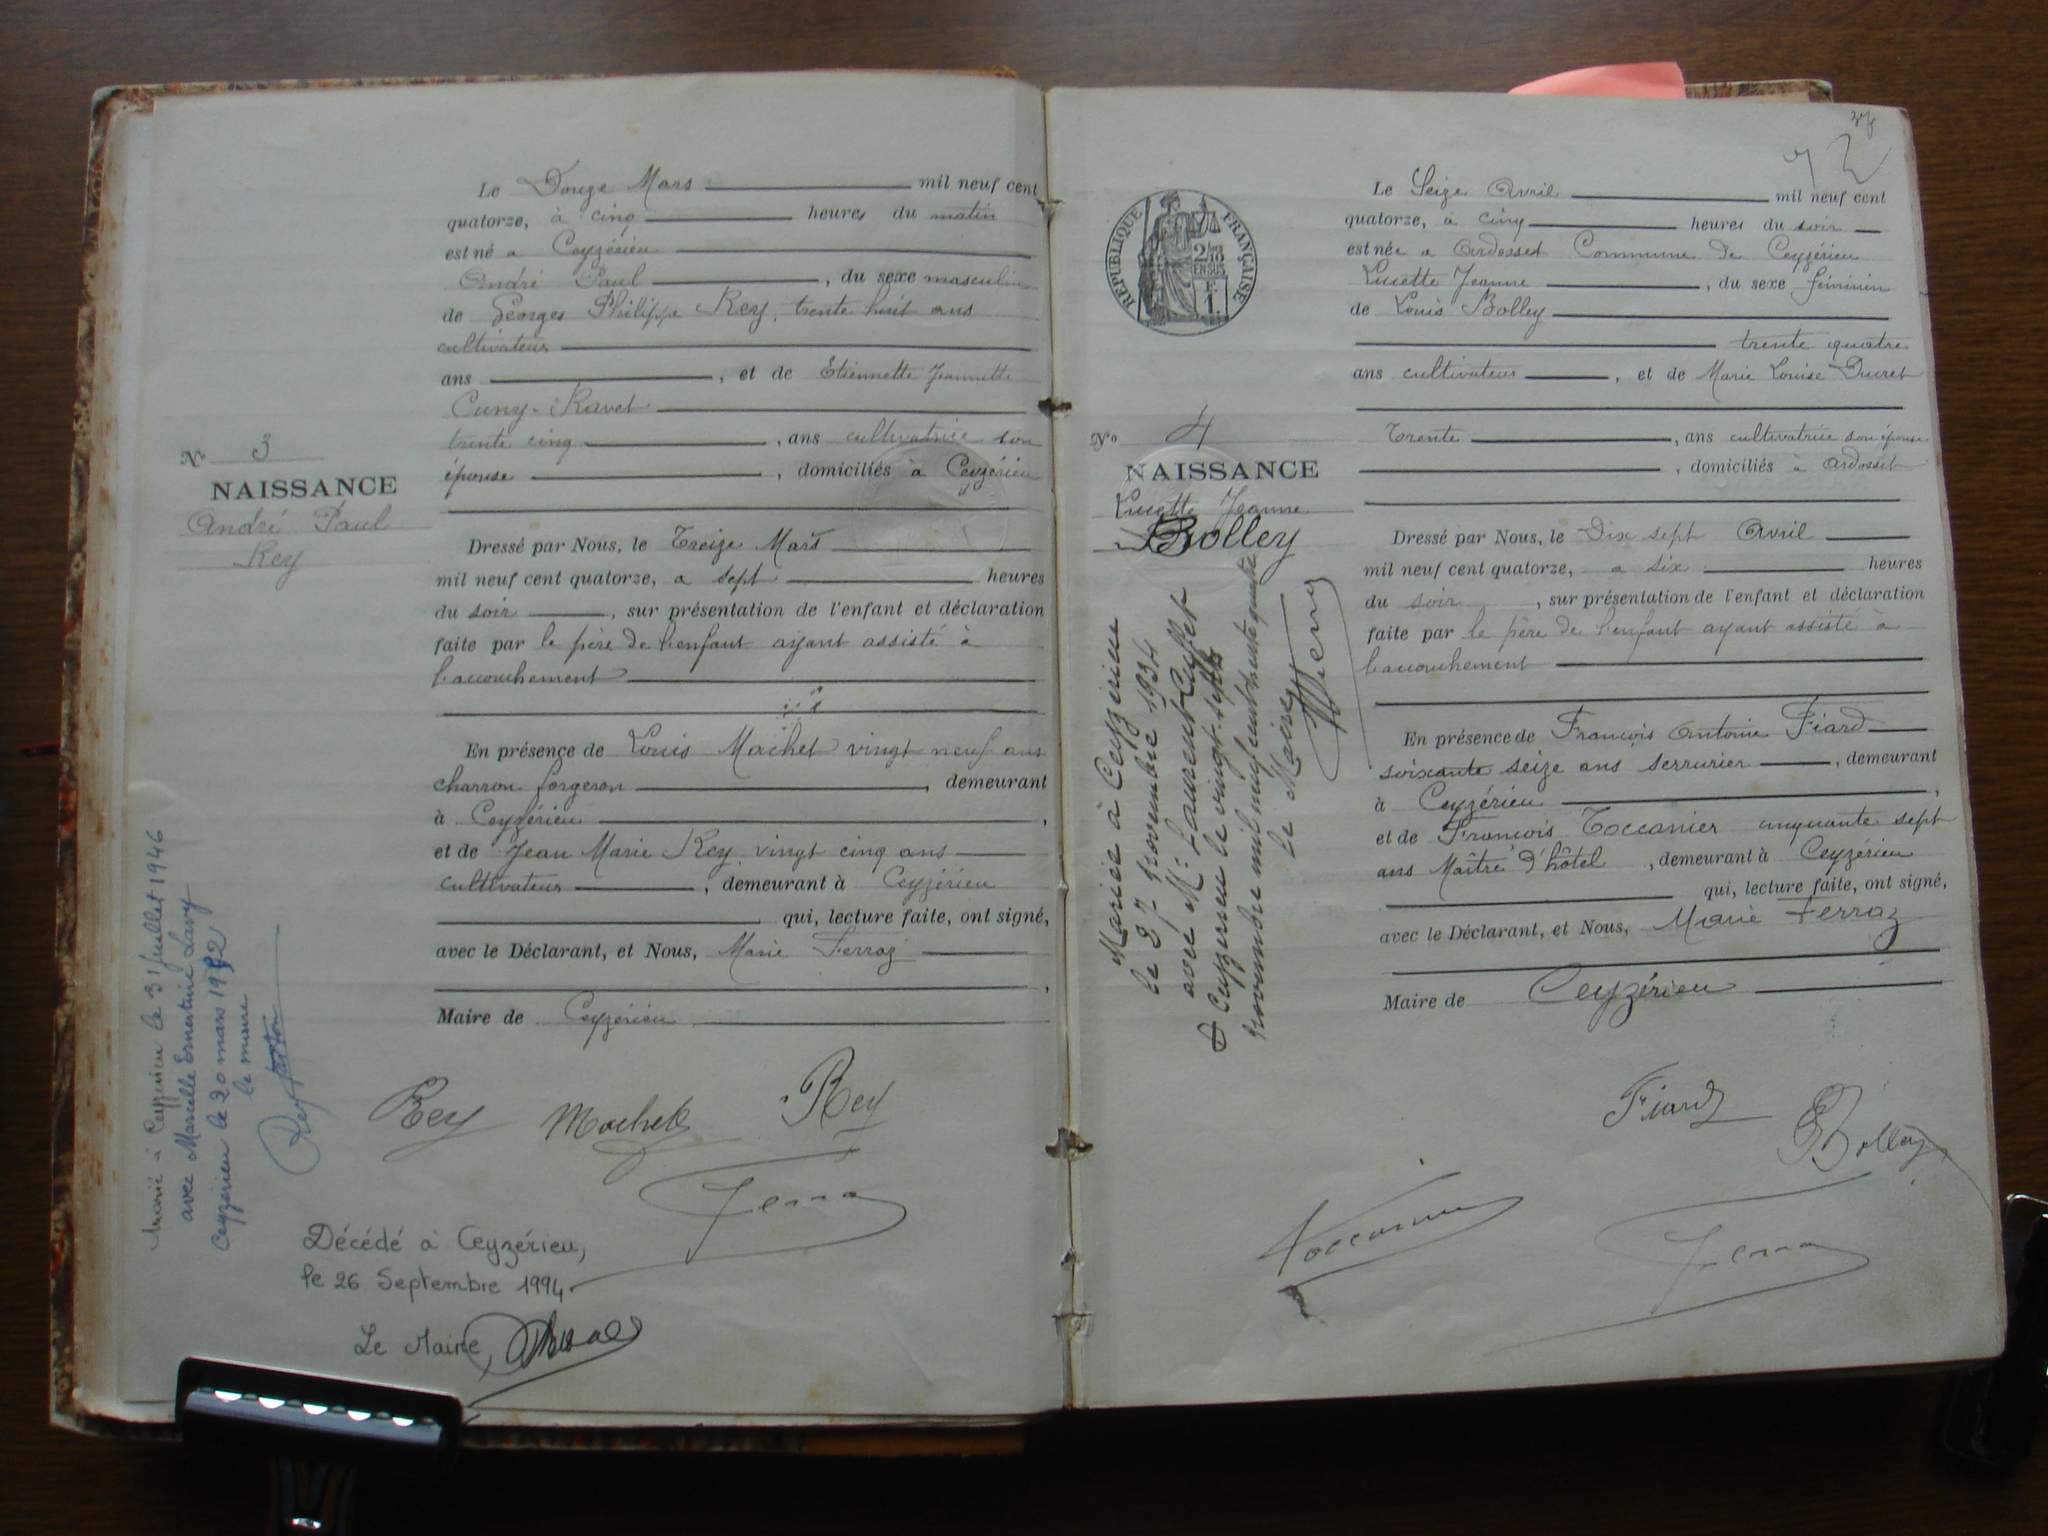 Le Douze Mars mil neuf cent
quatorze, à cinq heures du matin
est né a Ceyzérieu
André Paul, du sexe masculin
de Georges Philippe Rey, trente huit ans
cultivateur
ans, et de Etiennette Jeannette
Cuny-Ravet
trente cinq, ans cultivatrice son
épouse, domiciliés à Ceyzérieu
No 3
NAISSANCE
André Paul
Rey
Dressé par Nous, le Treize Mars
mil neuf cent quatorze, a sept heures
du soir, sur présentation de l'enfant et déclaration
faite par le père de l'enfant ayant assisté à
l'accouchement
En présence de Louis Machet vingt neuf ans
charron forgeron, demeurant
à Ceyzérieu,
et de Jean Marie Rey, vingt cinq ans
cultivateur, demeurant à Ceyzérieu
qui, lecture faite, ont signé,
avec le Déclarant, et Nous, Marie Ferraz
,
Maire de Ceyzérieu
Marié à Ceyzérieu le 31 juillet 1946
avec Marcelle Ernestine Lavy
Ceyzérieu le 20 mars 1982
le maire
Rey Machet Rey
Ferraz
Décédé à Ceyzérieu,
le 26 Septembre 1994
Le Maire
37
RÉPUBLIQUE FRANÇAISE
2/10
EN SUS
1F.
Le Seize Avril mil neuf cent
quatorze, à cinq heures du soir
est née a Ardosset Commune de Ceyzérieu
Lucette Jeanne, du sexe féminin
de Louis Bolley
trente quatre
ans cultivateur, et de Marie Louise Ducret
Trente, ans cultivatrice son épouse
, domiciliés à Ardosset
No 4
NAISSANCE
Lucette Jeanne
Bolley
Dressé par Nous, le Dix sept Avril
mil neuf cent quatorze, a six heures
du soir, sur présentation de l'enfant et déclaration
faite par le père de l'enfant ayant assisté à
l'accouchement
En présence de François Antoine Fiard
soixante seize ans serrurier, demeurant
à Ceyzérieu,
et de François Toccanier cinquante sept
ans Maître d'hôtel, demeurant à Ceyzérieu
qui, lecture faite, ont signé,
avec le Déclarant, et Nous, Marie Ferraz
Maire de Ceyzérieu
Mariée à Ceyzérieu
le 27 novembre 1934
avec Mr Laurent Cuffet
Ceyzérieu le vingt-sept
novembre mil neuf cent trente quatre
Le Maire
Fiard Bolley
Toccanier
Ferraz